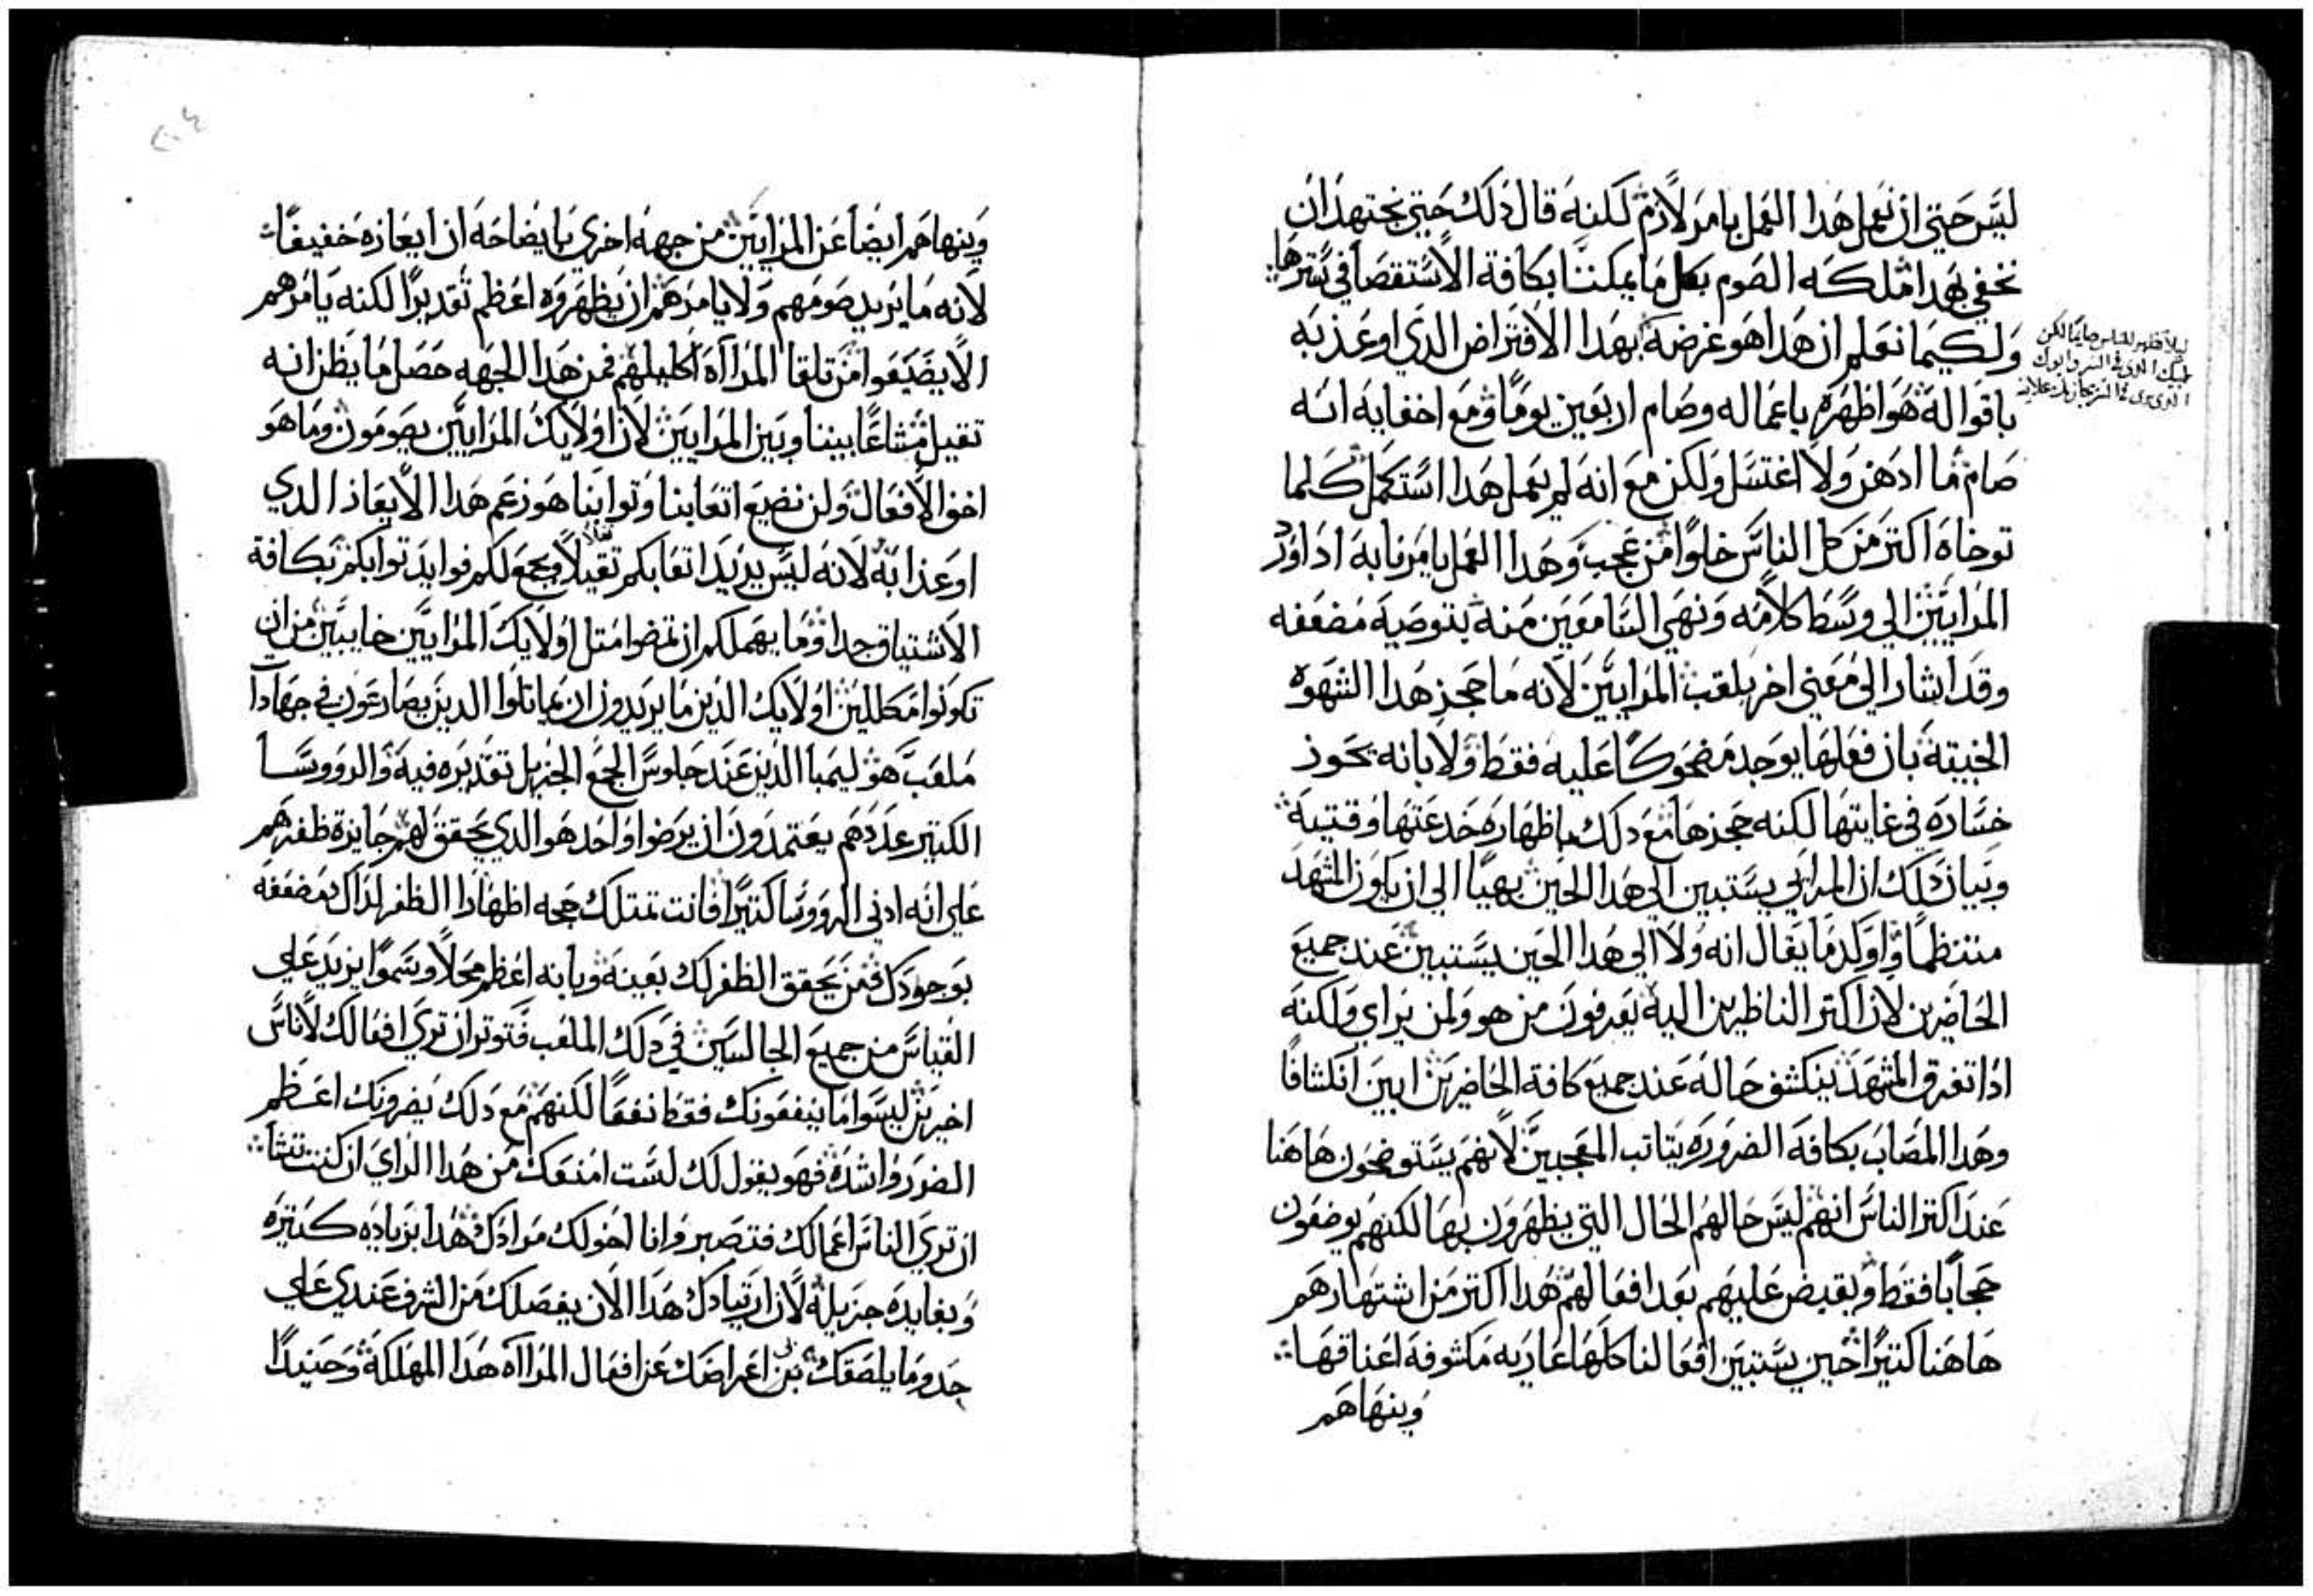 ليس حتي ان نعمل هدا العمل يامر لازم لكنه قال دلك حتي نجتهد ان
نخفي بهدا ملكه الصوم بكل ما يمكننا بكافة الاستقصا في سترها
ولكيما نعلم ان هدا هو غرضه بهدا الافتراض الدي اوعذ به
باقواله هو اظهره باعماله وصام اربعين يوما ومع اخفايه انه
صام ما ادهن ولا اغتسل ولكن مع انه لم يعمل هدا استكمل كلما
توخاه اكتر من كل الناس خلوا من عجب وهدا العمل يامرنا به ادا اورد
المرايين الي وسط كلامه ونهي السامعين منه بتوصية مضعفه
وقد اشار الي معني اخر بلقب المرايين لانه ما حجز هدا الشهوه
الخبيته بان فعلها يوجد مضحوكا عليه فقط ولا بانه يحوز
خساره في غايتها لكنه حجزها مع دلك باظهاره خدعتها وقتيه
وبيان دلك ان المرايي يستبين الي هدا الحين بهيا الي ان يكون المشهد
منتظما واوكد ما يقال انه ولا الي هدا الحين يستبين عند جميع
الحاضرين لان اكتر الناظرين اليه يعرفون من هو ولمن يراي ولكنه
ادا تفرق المشهد ينكشف حاله عند جميع كافة الحاضرين ابين انكشافا
وهدا المصاب بكافة الضروره يتاتب المعجبين لانهم يستوضحون هاهنا
عند اكتر الناس انهم ليس حالهم الحال التي يظهرون بها لكنهم يوضعون
حجابا فقط ويقبض عليهم بعد افعالهم هدا اكتر من اشتهارهم
هاهنا كتيرا حين يستبين افعالنا كلها عاريه مكشوفه اعناقها
وينهاهم
ليلا تظهر للناس صايما لكن
لابيك الدي في السر وابوك
الدي يري في السر يجازيك علانيه
وينهاهم ايضا عن المرايين من جهه اخري بايضاحه ان ايعازه خفيفا
لانه ما يزيد صومهم ولا يامرهم ان يظهروه اعظم تقديرا لكنه يامرهم
الا يضيعوا من تلقا المراآه اكليلهم فمن هدا الجهه حصل ما يظن انه
تقيل مشاعا بيننا وبين المرايين لان اولايك المرايين يصومون وما هو
اخف الافعال ولن نضيع اتعابنا وتوابنا هو زعم هدا الايعاز الدي
اوعذ به لانه ليس يزيد اتعابكم تقيلا ويجمع لكم فوايد توابكم بكافة
الاشتياق جدا وما يهملكم ان تمضوا متل اولايك المرايين خايبين من ان
تكونوا مكللين اولايك الدين ما يريدون ان يماتلوا الدين يصارعون في جهادا
ملعب هو ليمبا الدين عند جلوس الجمع الجزيل تقديره فيه والرووسا
الكتير عددهم يعتمدون ان يرضوا واحد هو الدي يحقق لهم جايزة ظفرهم
علي انه ادني الرووسا كتيرا فانت تمتلك حجه اظهارا الظفر لداك مضعفه
بوجودك من يحقق الظفر لك بعينه وبانه اعظم محلا وسموا يزيد علي
القياس من جميع الجالسين في دلك الملعب فتوتر ان تري افعالك لاناس
اخرين ليسوا ما ينفعونك فقط نفعا لكنهم مع دلك يضرونك اعظم
الضرر واشده فهو يقول لك لست امنعك من هدا الراي ان كنت تشا
ان تري الناس اعمالك فتصبر وانا اخولك مرادك هدا بزياده كتيره
وبفايده جزيله لان ارتيادك هدا الان يفصلك من الشرف عندي علي
حدو ما يلصقك بي اعراضك عن افعال المراآه هدا المهلكة وحينيدا